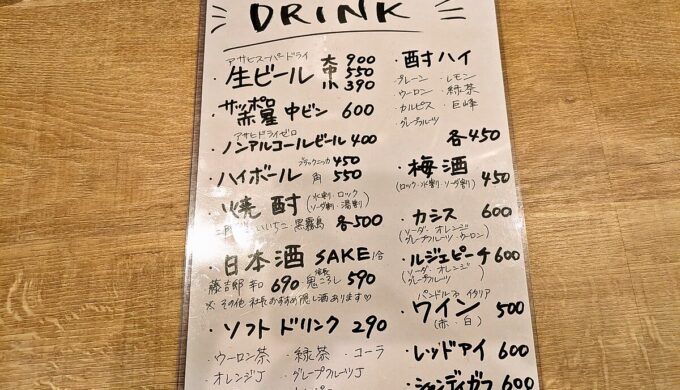 DRINK
アサヒスーパードライ
・生ビール 大 900
中 550
小 390
・サッポロ赤星 中ビン 600
アサヒドライゼロ
・ノンアルコールビール 400
・ハイボール ブラックニッカ 450
角 550
・焼酎 (水割・ロック・ソーダ割・湯割)
いいちこ・黒霧島 各500
・日本酒 SAKE 1合
690 鬼ころし 590
※その他 社長おすすめ隠し酒あります♡
・ソフトドリンク 290
・ウーロン茶 ・緑茶 ・コーラ
・オレンジJ ・グレープフルーツJ
・酎ハイ
・プレーン ・レモン
・ウーロン ・緑茶
・カルピス ・巨峰
・グレープフルーツ
各450
・梅酒
(ロック・水割・ソーダ割) 450
・カシス 600
(ソーダ・オレンジ
グレープフルーツ・ウーロン)
・ルジェピーチ 600
(ソーダ・オレンジ
グレープフルーツ)
イタリア
・ワイン 500
(赤・白)
・レッドアイ 600
・シャンディガフ 600